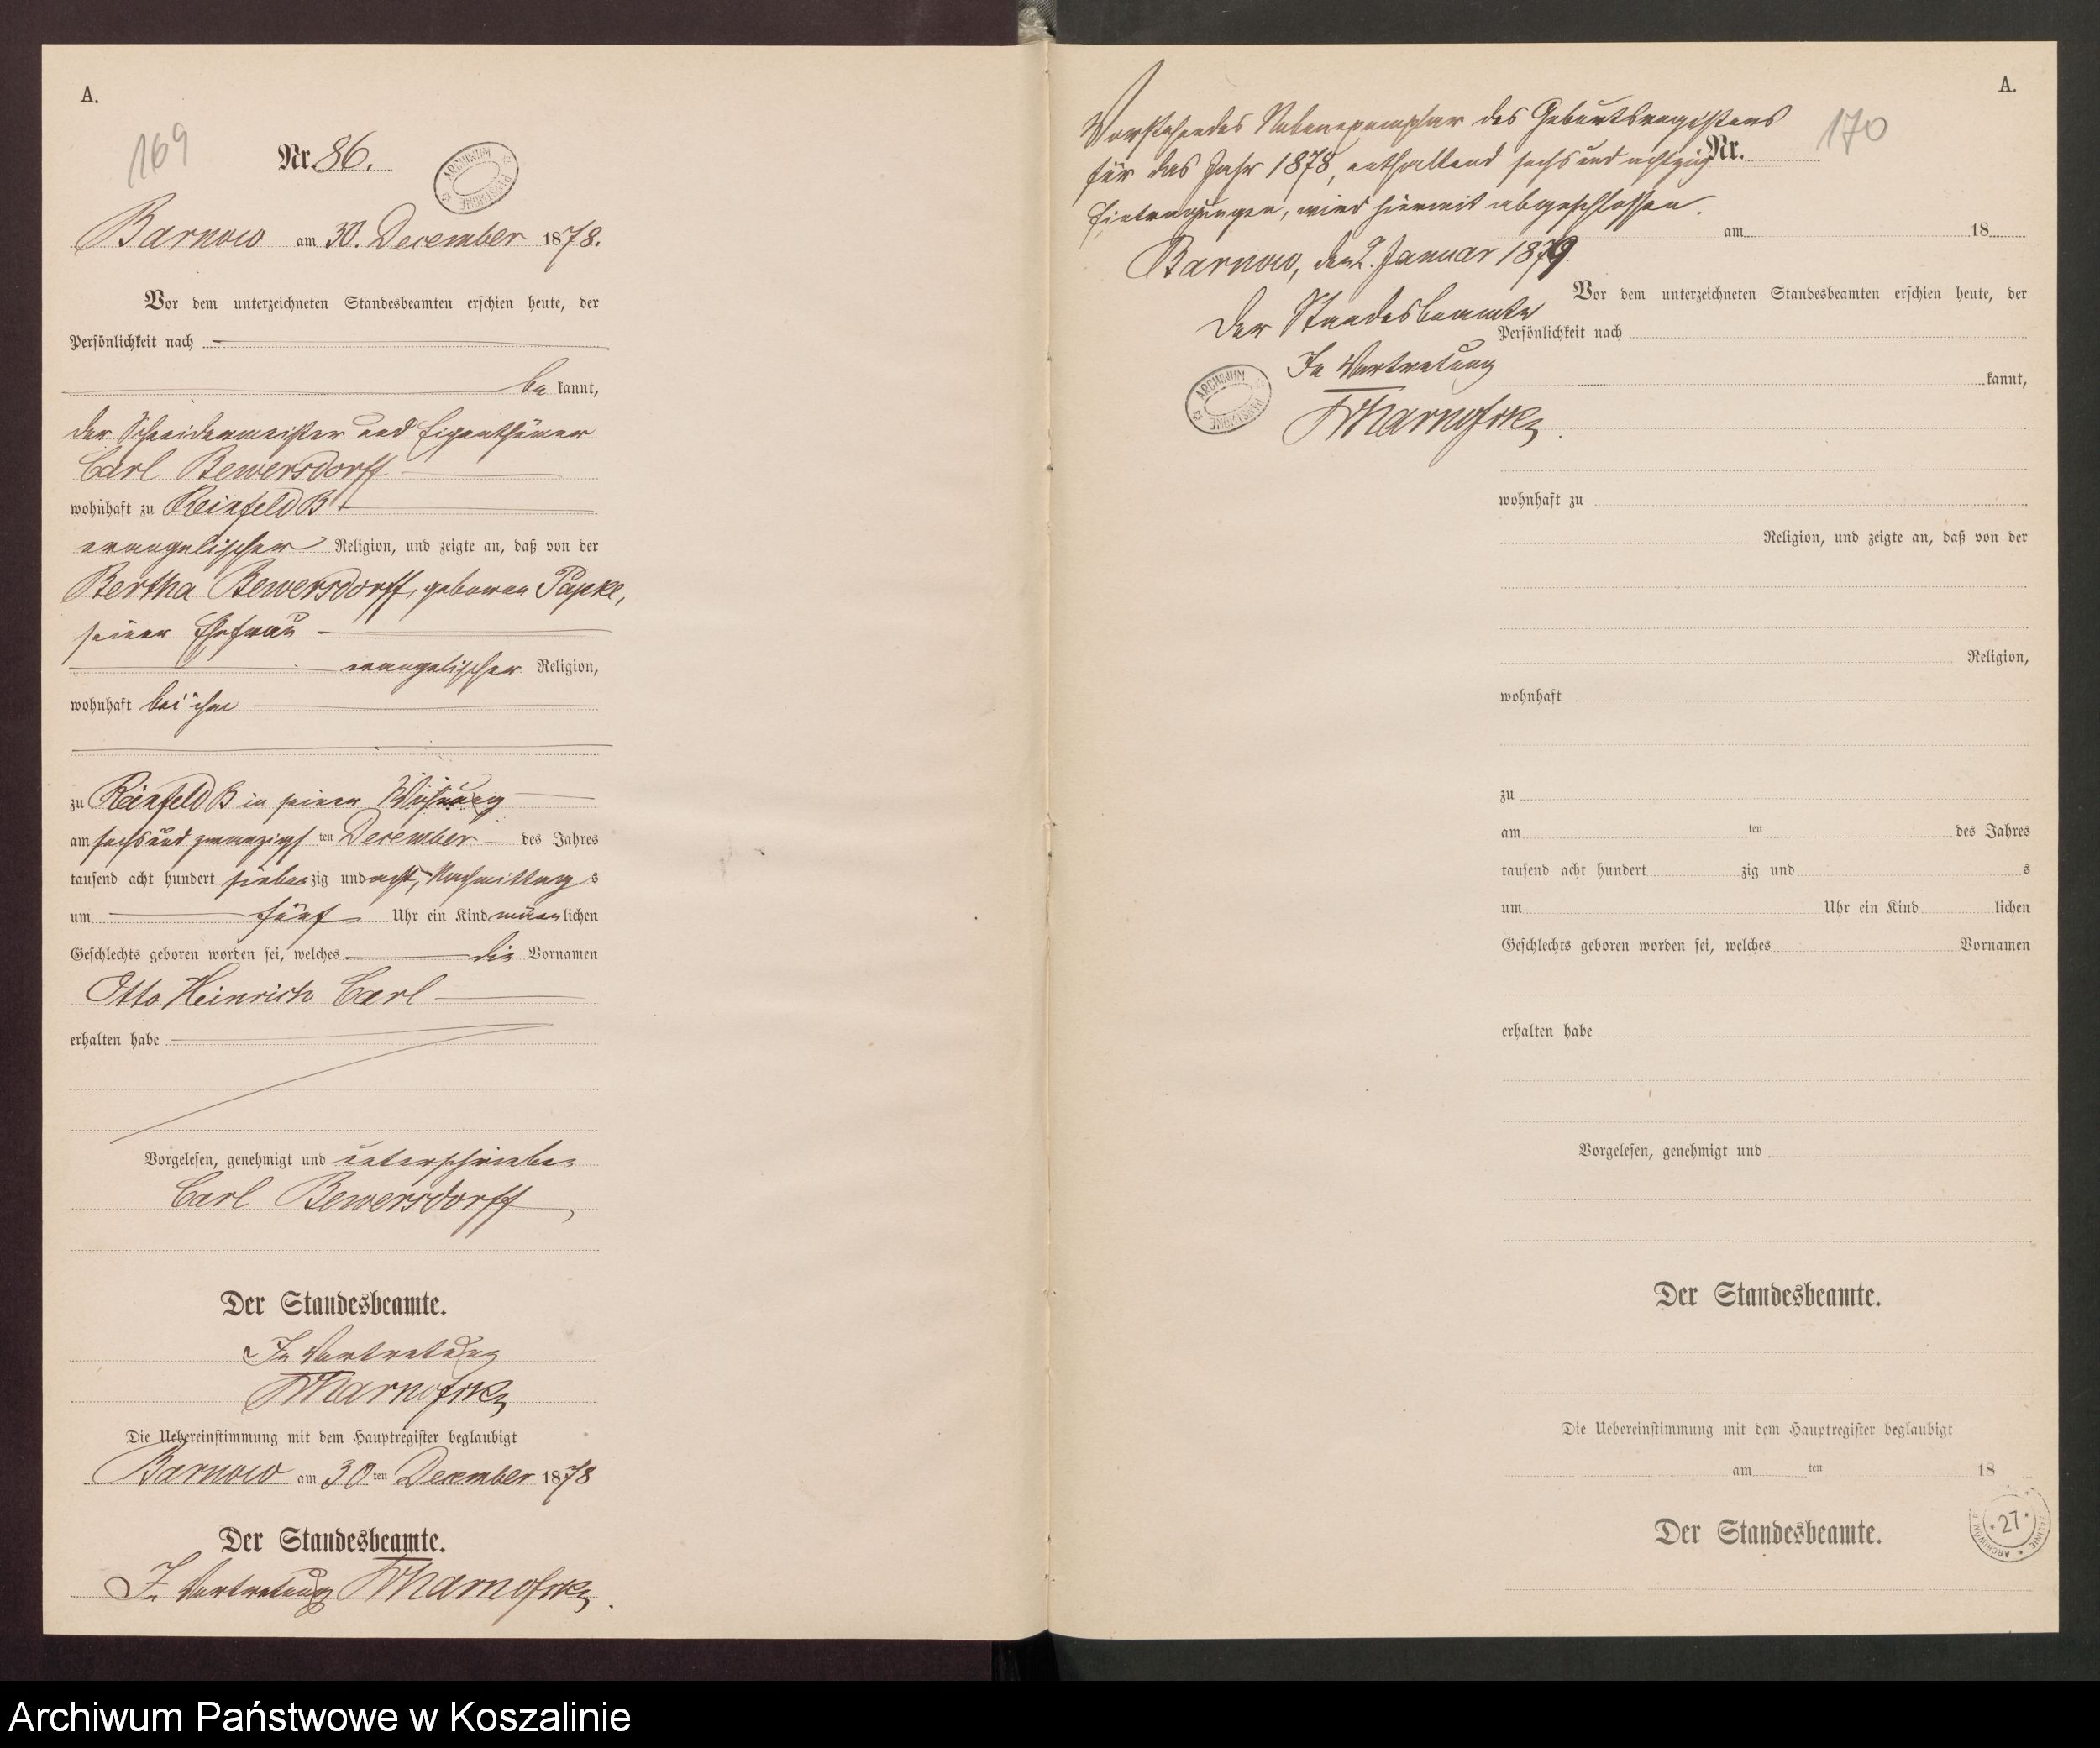 A.
169
Nr. 86.
ARCHIWUM PAŃSTWOWE
Barnow am 30. December 1878.
Vor dem unterzeichneten Standesbeamten erschien heute, der
Persönlichkeit nach
be kannt,
der Schneidermeister und Eigenthümer
Carl Bewersdorff
wohnhaft zu Reinfeld B
evangelischer Religion, und zeigte an, daß von der
Bertha Bewersdorff, geboren Papke,
seiner Ehefrau
evangelischer Religion,
wohnhaft bei ihm
zu Reinfeld B in seiner Wohnung
am sechs und zwanzigs ten December des Jahres
tausend acht hundert sieben zig und acht, Nachmittag s
um fünf Uhr ein Kind männ lichen
Geschlechts geboren worden sei, welches die Vornamen
Otto Heinrich Carl
erhalten habe
Vorgelesen, genehmigt und unterschrieben
Carl Bewersdorff
Der Standesbeamte.
In Vertretung
Die Uebereinstimmung mit dem Hauptregister beglaubigt
Barnow am 30 ten December 1878
Der Standesbeamte.
In Vertretung
A.
170
Vorstehendes Nebenexemplar des Geburtsregisters
Nr.
für das Jahr 1878, enthaltend sechs und achtzig
Eintragungen, wird hiermit abgeschlossen.
am 18
Barnow, den 2. Januar 1879.
Vor dem unterzeichneten Standesbeamten erschien heute, der
Der Standesbeamte
Persönlichkeit nach
In Vertretung
kannt,
ARCHIWUM PAŃSTWOWE
wohnhaft zu
Religion, und zeigte an, daß von der
Religion,
wohnhaft
zu
am ten des Jahres
tausend acht hundert zig und s
um Uhr ein Kind lichen
Geschlechts geboren worden sei, welches Vornamen
erhalten habe
Vorgelesen, genehmigt und
Der Standesbeamte.
Die Uebereinstimmung mit dem Hauptregister beglaubigt
am ten 18
Der Standesbeamte.
* 27 *
Archiwum Państwowe w Koszalinie